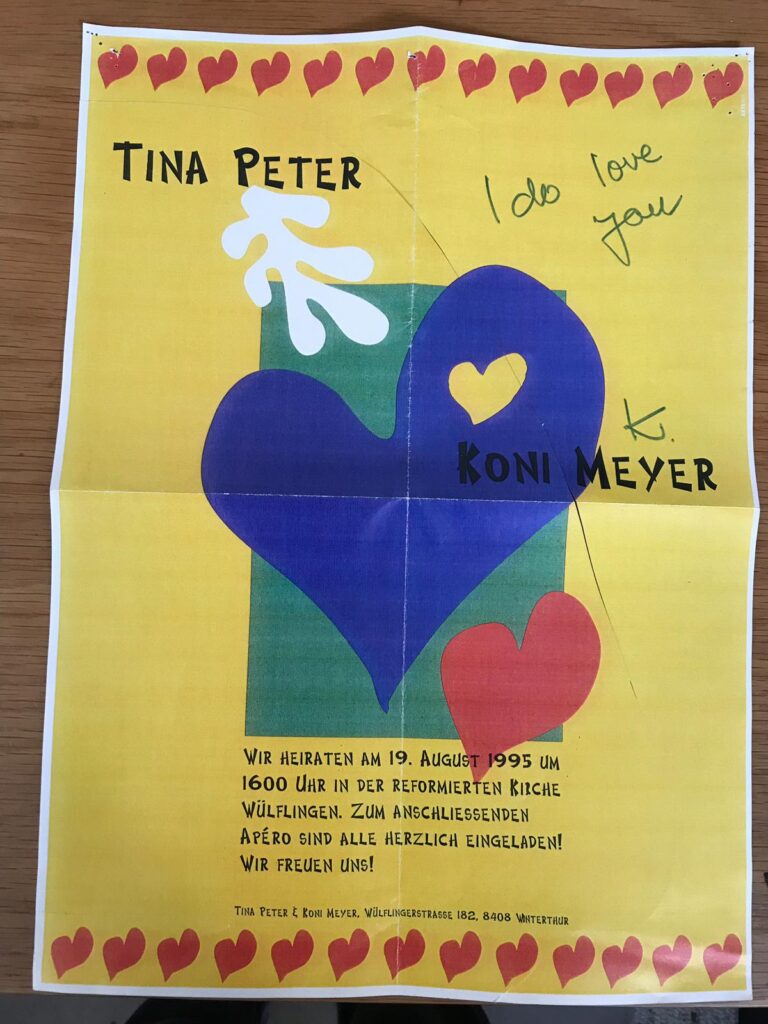 TINA PETER
I do love
you
K.
KONI MEYER
WIR HEIRATEN AM 19. AUGUST 1995 UM
1600 UHR IN DER REFORMIERTEN KIRCHE
WÜLFLINGEN. ZUM ANSCHLIESSENDEN
APÉRO SIND ALLE HERZLICH EINGELADEN!
WIR FREUEN UNS!
TINA PETER & KONI MEYER, WÜLFLINGERSTRASSE 182, 8408 WINTERTHUR